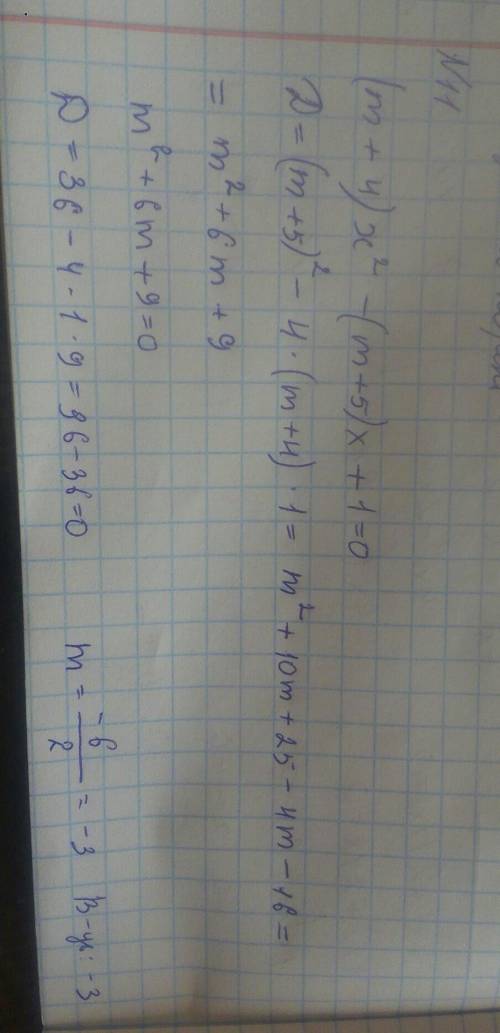 N11
(m + 4)x² - (m+5)x + 1 = 0
D = (m+5)² - 4 · (m+4) · 1 = m² + 10m + 25 - 4m - 16 =
= m² + 6m + 9
m² + 6m + 9 = 0
D = 36 - 4 · 1 · 9 = 36 - 36 = 0 m = -6/2 = -3 В-дь: -3